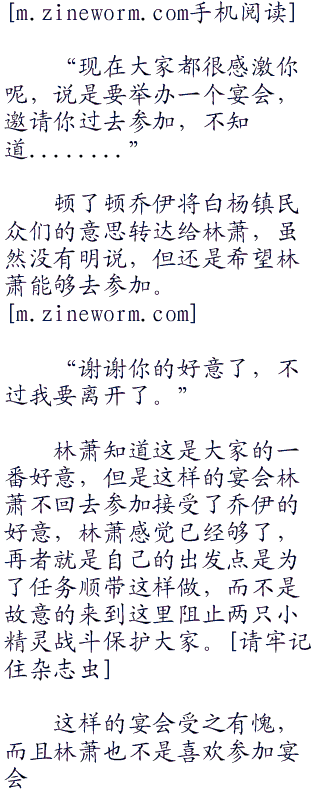 [m.zineworm.com手机阅读]
“现在大家都很感激你
呢，说是要举办一个宴会，
邀请你过去参加，不知
道........”
顿了顿乔伊将白杨镇民
众们的意思转达给林萧，虽
然没有明说，但还是希望林
萧能够去参加。
[m.zineworm.com]
“谢谢你的好意了，不
过我要离开了。”
林萧知道这是大家的一
番好意，但是这样的宴会林
萧不回去参加接受了乔伊的
好意，林萧感觉已经够了，
再者就是自己的出发点是为
了任务顺带这样做，而不是
故意的来到这里阻止两只小
精灵战斗保护大家。[请牢记
住杂志虫]
这样的宴会受之有愧，
而且林萧也不是喜欢参加宴
会